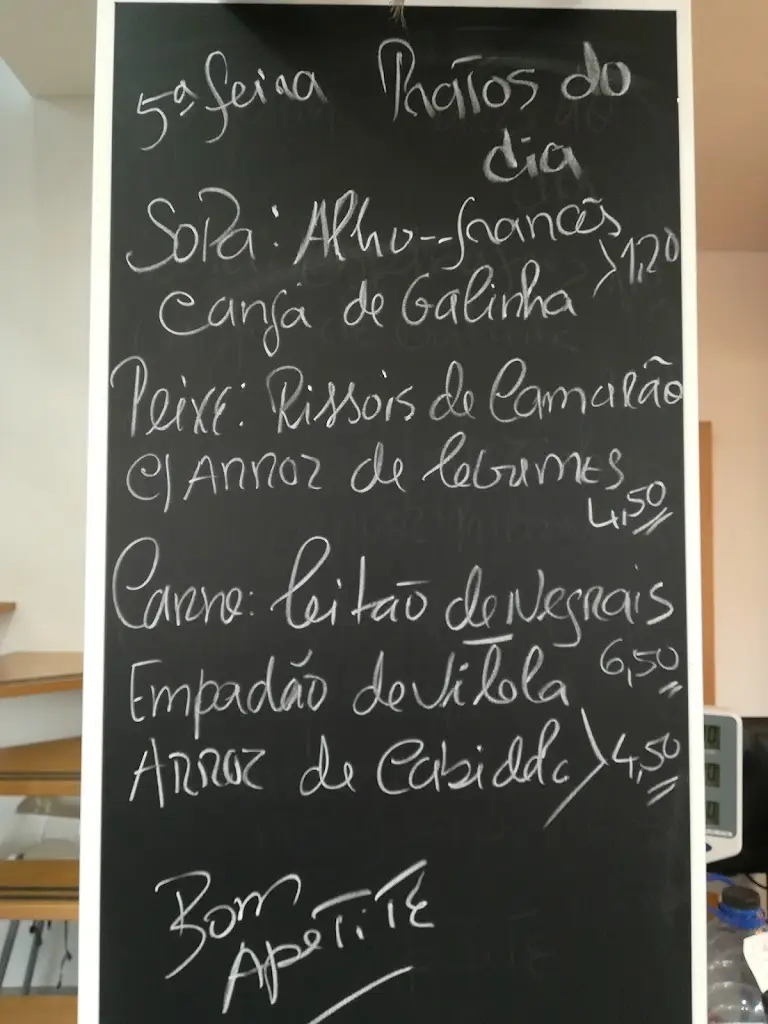 5ª feira Pratos do
dia
Sopa: Alho-francês
Canja de Galinha >1,20
Peixe: Rissois de Camarão
c/ Arroz de legumes
4,50
Carne: leitão de Negrais
6,50
Empadão de Vitela
Arroz de Cabidela >4,50
Bom
Apetite